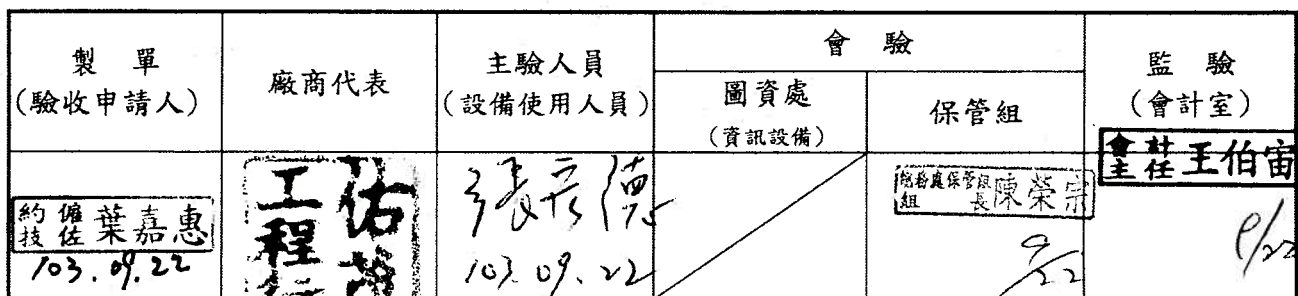 製 單
(驗收申請人)
廠商代表
主驗人員
(設備使用人員)
會 驗
圖資處
(資訊設備)
保管組
監 驗
(會計室)
約僱
技佐 葉嘉惠
103.09.22
佑
工程
張彥德
103.09.22
總務處保管組
組長 陳榮宗
9/22
會計
主任 王伯宙
9/22